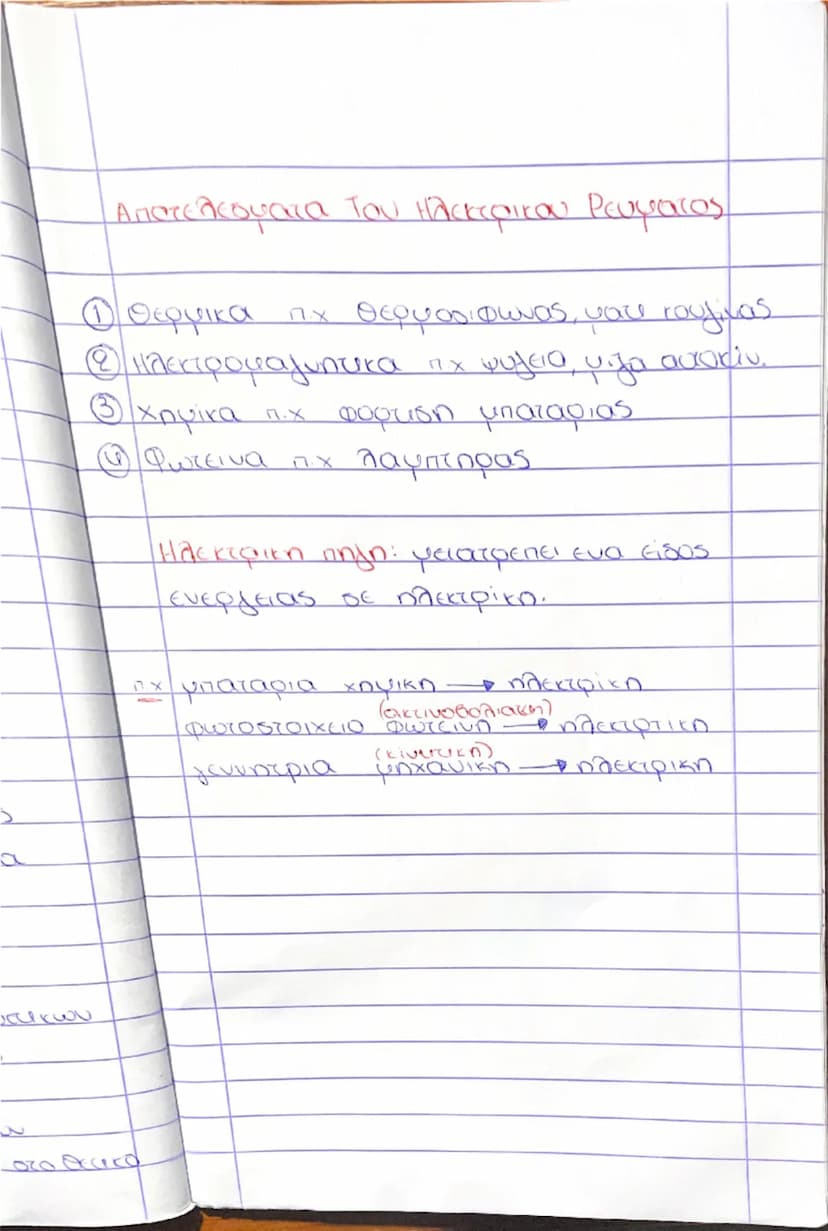 Αποτελεσματα Του Ηλεκτρικου Ρευματος
① Θερμικα π.χ Θερμοσιφωνας, ματι κουζινας
② Ηλεκτρομαγνητικα π.χ ψυγειο, μιζα αυτοκιν.
③ Χημικα π.χ φορτιση μπαταριας
④ Φωτεινα π.χ λαμπτηρας
Ηλεκτρικη πηγη: μετατρεπει ενα ειδος
ενεργειας σε ηλεκτρικη.
πχ μπαταρια χημικη → ηλεκτρικη
(ακτινοβολιακη)
φωτοστοιχειο φωτεινη → ηλεκτρτικη
(κινητικη)
γεννητρια μηχανικη → ηλεκτρικη